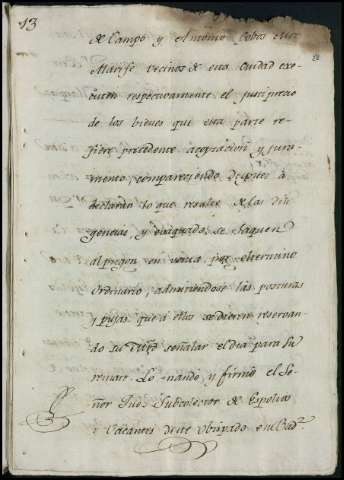 13
de Campo y Antonio Cobos Mro
Alarife vecinos de esta Ciudad exe-
cuten respectivamente el justiprecio
de los bienes que esta parte re-
fiere precedente aceptacion y jura-
mento, compareciendo despues a
declarar lo que resulte de las dili
gencias, y evaquado se saquen
al pregon en venta por el termino
Ordinario, admitiendose las posturas
y pujas que a ellos se dieren reservan-
do su señalar el dia para su
remate. Lo mando y firmo el Se-
ñor Juez Subcolector de Espolios
y Vacantes de este Obispado en